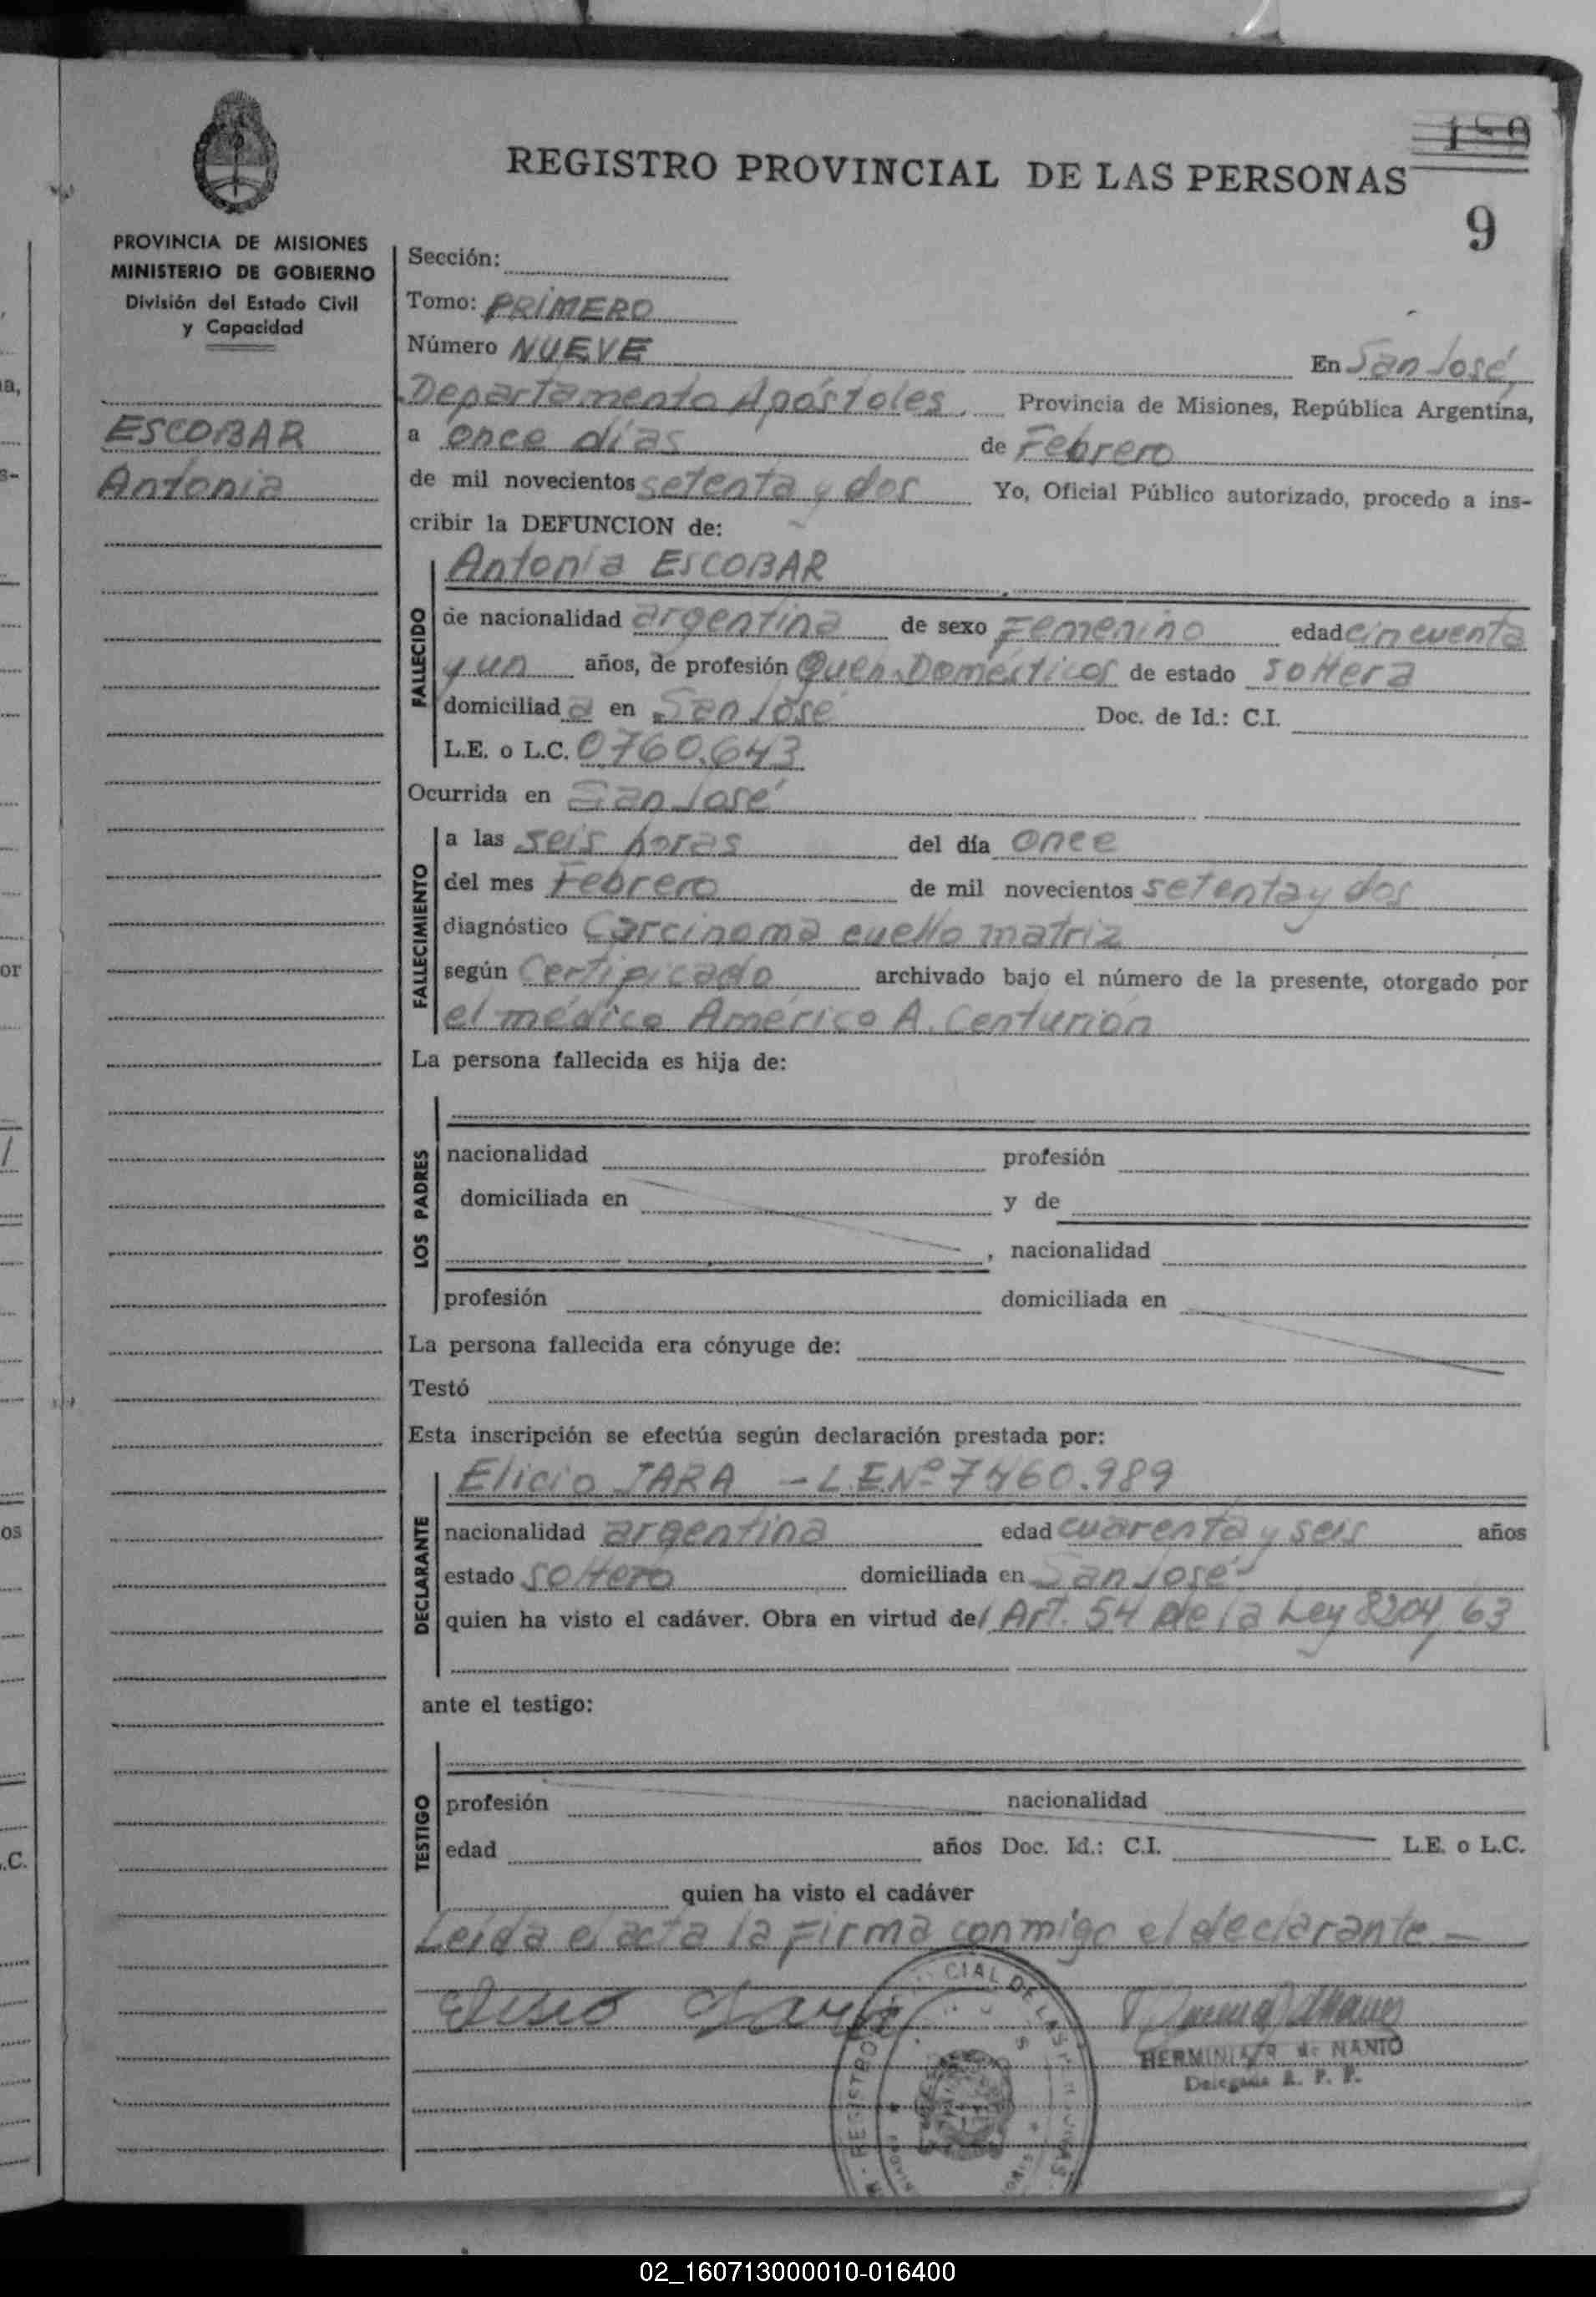 189
REGISTRO PROVINCIAL DE LAS PERSONAS
9
PROVINCIA DE MISIONES
MINISTERIO DE GOBIERNO
División del Estado Civil
y Capacidad
ESCOBAR
Antonia
Sección:
Tomo: PRIMERO
Número NUEVE En San José,
Departamento Apóstoles, Provincia de Misiones, República Argentina,
a once días de Febrero
de mil novecientos setenta y dos Yo, Oficial Público autorizado, procedo a ins-
cribir la DEFUNCION de:
FALLECIDO
Antonia ESCOBAR
de nacionalidad argentina de sexo Femenino edad cincuenta
y un años, de profesión Queh. Domésticos de estado soltera
domiciliad a en San José Doc. de Id.: C.I.
L.E. o L.C. 0.760.643
Ocurrida en San José
FALLECIMIENTO
a las seis horas del día once
del mes Febrero de mil novecientos setenta y dos
diagnóstico Carcinoma cuello matriz
según Certificado archivado bajo el número de la presente, otorgado por
el médico Américo A. Centurión
La persona fallecida es hija de:
LOS PADRES
nacionalidad profesión
domiciliada en y de
, nacionalidad
profesión domiciliada en
La persona fallecida era cónyuge de:
Testó
Esta inscripción se efectúa según declaración prestada por:
DECLARANTE
Elicio JARA - L.E.Nº 7460.989
nacionalidad argentina edad cuarenta y seis años
estado soltero domiciliada en San José
quien ha visto el cadáver. Obra en virtud del Art. 54 de la Ley 8204/63
ante el testigo:
TESTIGO
profesión nacionalidad
edad años Doc. Id.: C.I. L.E. o L.C.
quien ha visto el cadáver
Leída el acta la firma conmigo el declarante.-
HERMINIA R. de NANTO
Delegada R. P. P.
02_160713000010-016400